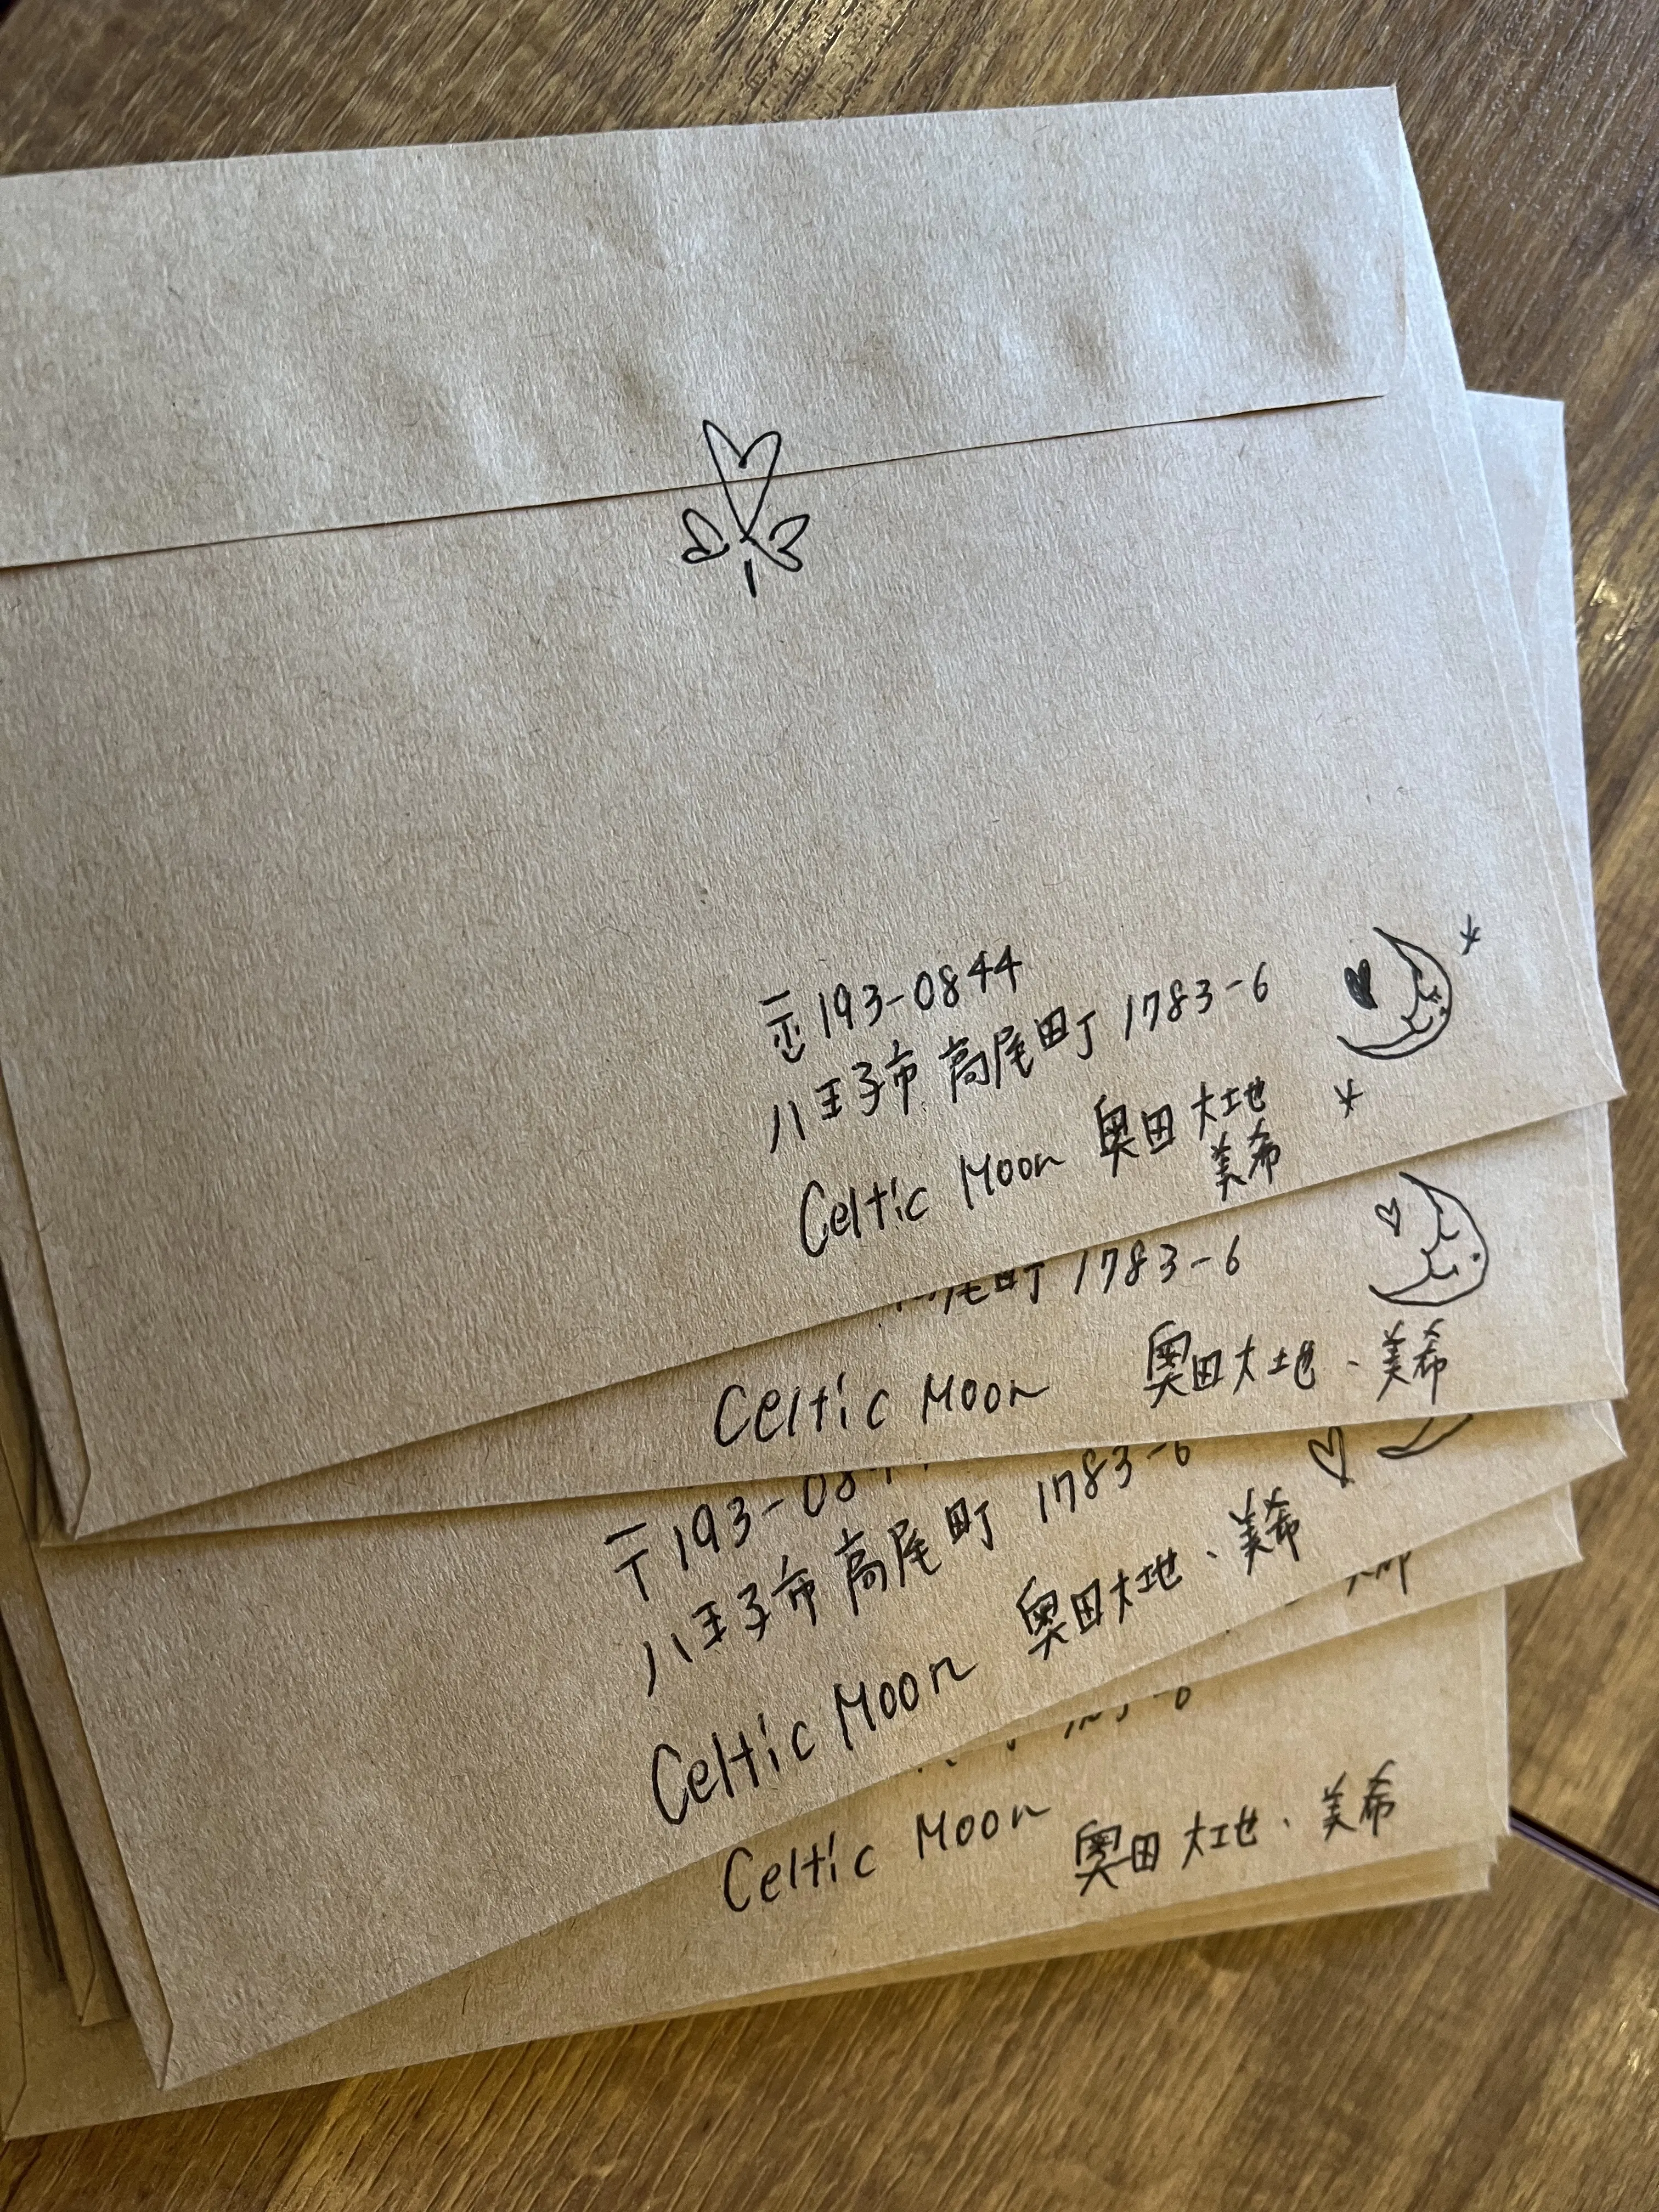 〒193-0844
八王子市高尾町1783-6
Celtic Moon 奥田大地
美希
尾町 1783-6
Celtic Moon 奥田大地・美希
〒193-08
八王子市高尾町 1783-6
Celtic Moon 奥田大地・美希
Celtic Moon 奥田大地・美希